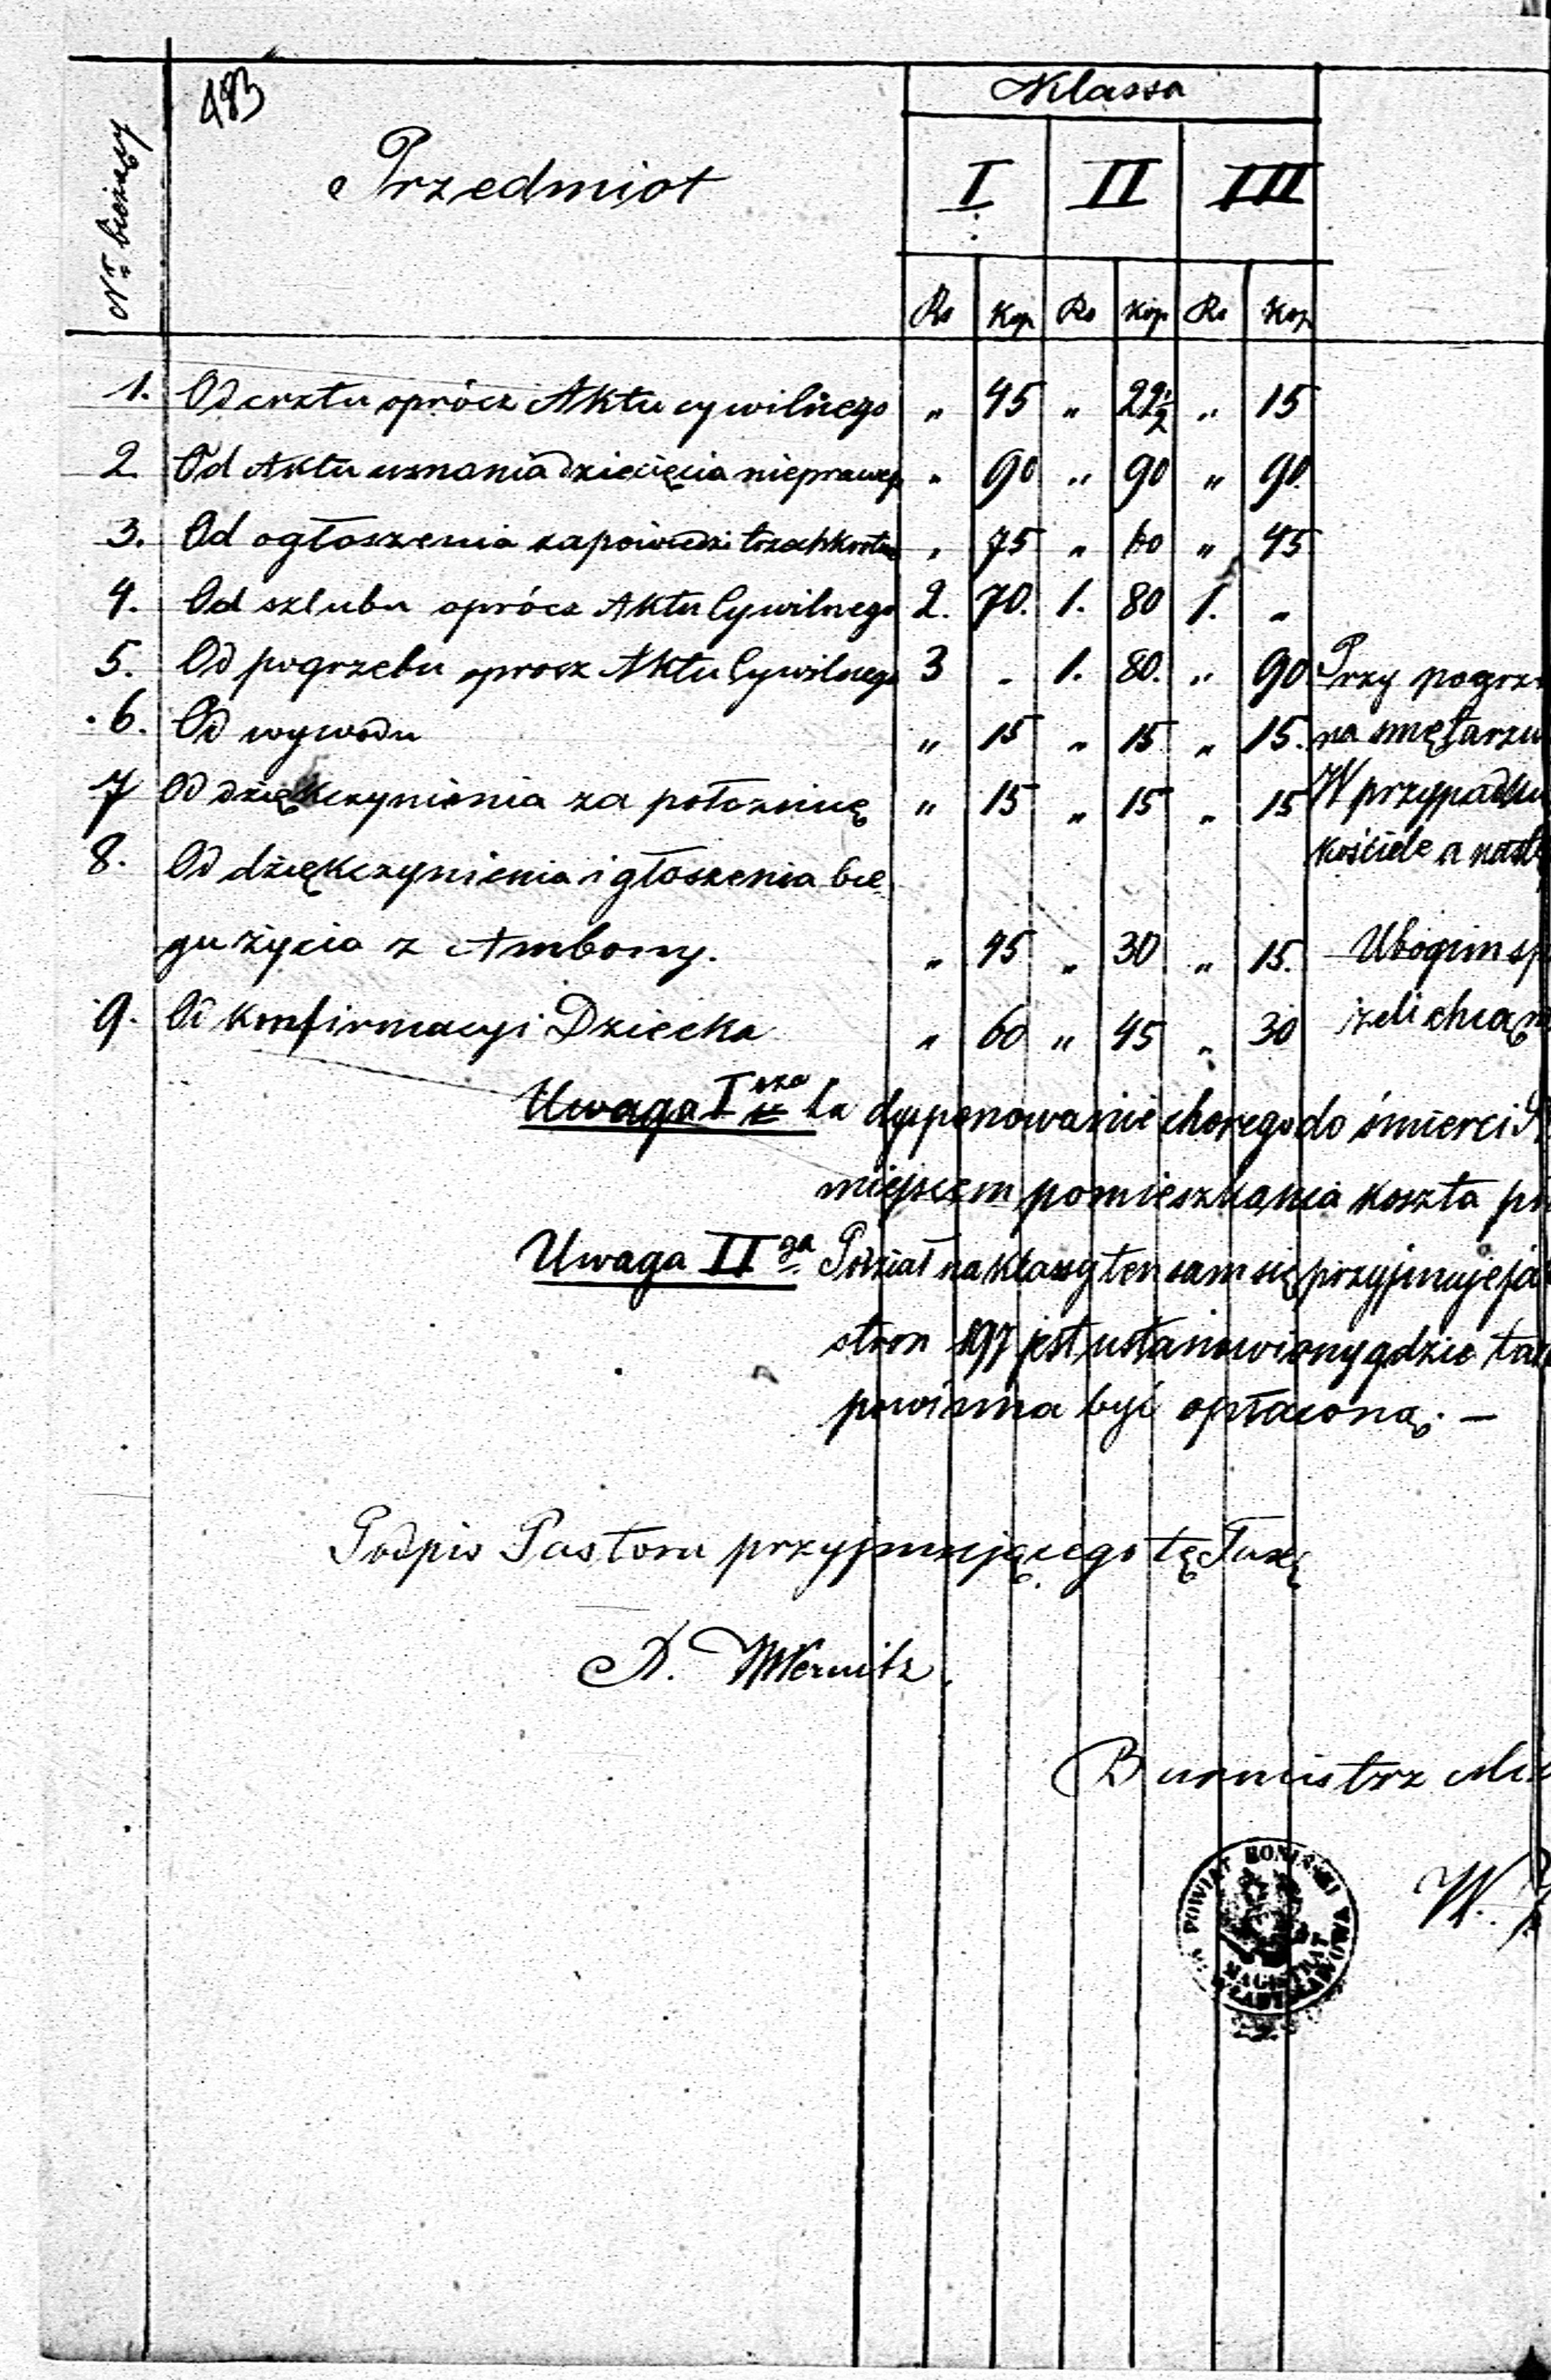 483
Nr bieżący
Przedmiot
Klassa
I II III
Rs Kop Rs Kop Rs Kop
1. Od crztu oprócz Aktu cywilnego " 45 " 22½ " 15
2 Od Aktu uznania dziecięcia nieprawego " 90 " 90 " 90.
3. Od ogłoszenia zapowiedzi trzechkrotne " 75 " 60 " 45
4. Od szlubu oprócz Aktu Cywilnego 2. 70. 1. 80 1. "
5. Od pogrzebu oprocz Aktu Cywilnego 3 " 1. 80. " 90 Przy pogrze
6. Od wywodu " 15 " 15 " 15. na smętarzu
7 Od dziękczynienia za położnicę " 15 " 15 " 15 W przypadku
8. Od dziękczynienia i głoszenia bie kościele a nastę
gu życia z Ambony. " 45 " 30 " 15. Ubogim sp
9. Od konfirmacyi Dziecka " 60 " 45 " 30 żeli chcą
Uwaga I sza Za dysponowanie chorego do śmierci
miejscem pomieszkania koszta p
Uwaga II ga Podział na klassy ten sam się przyjmuje ja
stron 197 jest ustanowiony gdzie ta
powinna być opłaconą. —
Podpis Pastora przyjmującego tę Taxę
A. Wernitz
Burmistrz Mia
W.
POWIAT KONIŃSKI
MAGISTRAT